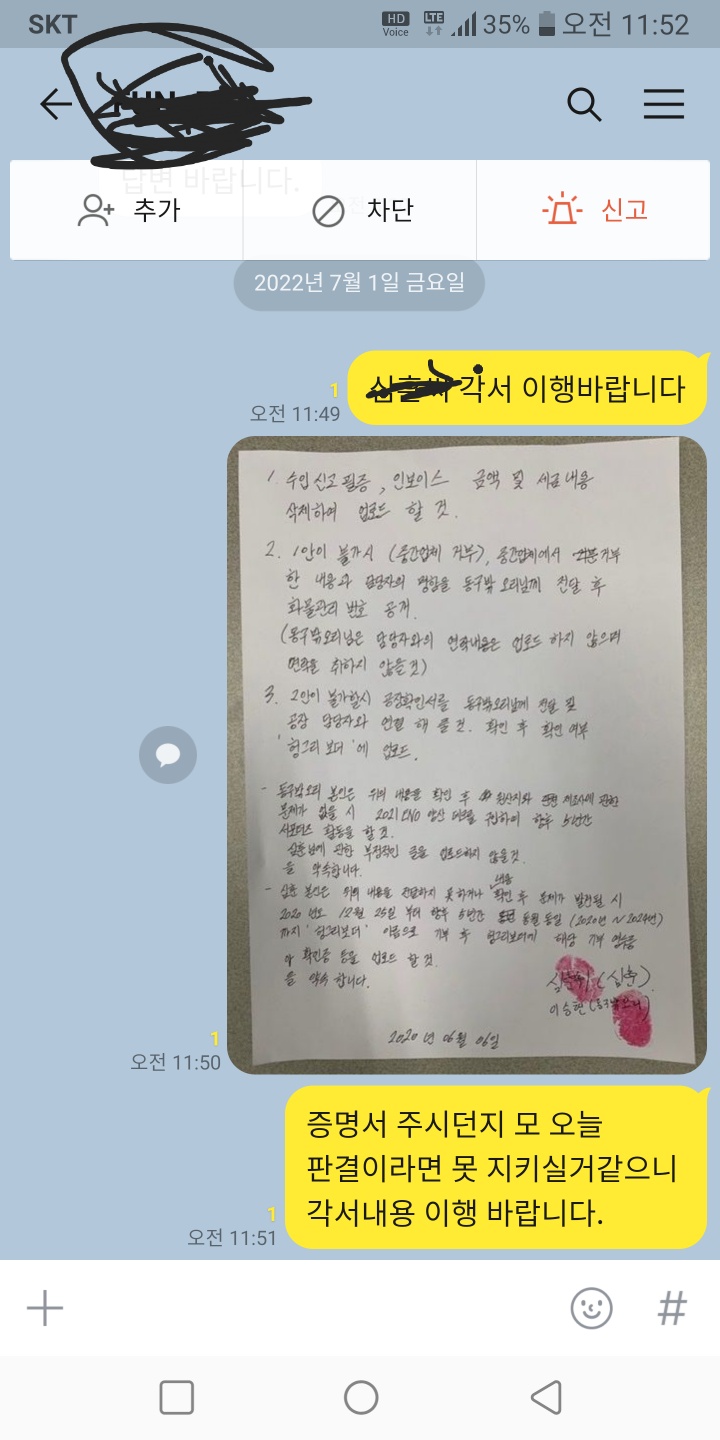 SKT HD Voice LTE 35% 오전 11:52
답변 바랍니다.
추가 차단 신고
2022년 7월 1일 금요일
각서 이행바랍니다
1
오전 11:49
1. 수입신고필증, 인보이스 금액 및 세금내용
삭제하여 업로드 할 것.
2. 1안이 불가시 (중간업체 거부), 중간업체에서 거부
한 내용과 담당자의 명함을 동구밖오리님께 전달 후
화물관리 번호 공개.
(동구밖오리님은 담당자와의 연락내용은 업로드 하지 않으며
연락을 취하지 않을것)
3. 2안이 불가할시 공장확인서를 동구밖오리님께 전달 및
공장 담당자와 연결 해 줄것. 확인 후 확인 여부
'헝그리보더'에 업로드.
- 동구밖오리 본인은 위의 내용을 확인 후 원산지와 제조사에 관한
문제가 없을 시 2021 데크를 구입하여 향후 5년간
서포터스 활동을 할 것.
심훈님에 관한 부정적인 글을 업로드하지 않을것.
을 약속합니다.
- 심훈 본인은 위의 내용을 전달하지 못하거나 내용 확인 후 문제가 발견될 시
2020년도 12월 25일 부터 향후 5년간 동월 동일 (2020년 ~ 2024년)
까지 '헝그리보더' 이름으로 기부 후 헝그리보더에 해당 기부 영수증
및 확인증 등을 업로드 할 것.
을 약속 합니다.
(심훈)
이승현 (동구밖오리)
2020년 06월 06일
1
오전 11:50
증명서 주시던지 모 오늘
판결이라면 못 지키실거같으니
각서내용 이행 바랍니다.
1
오전 11:51